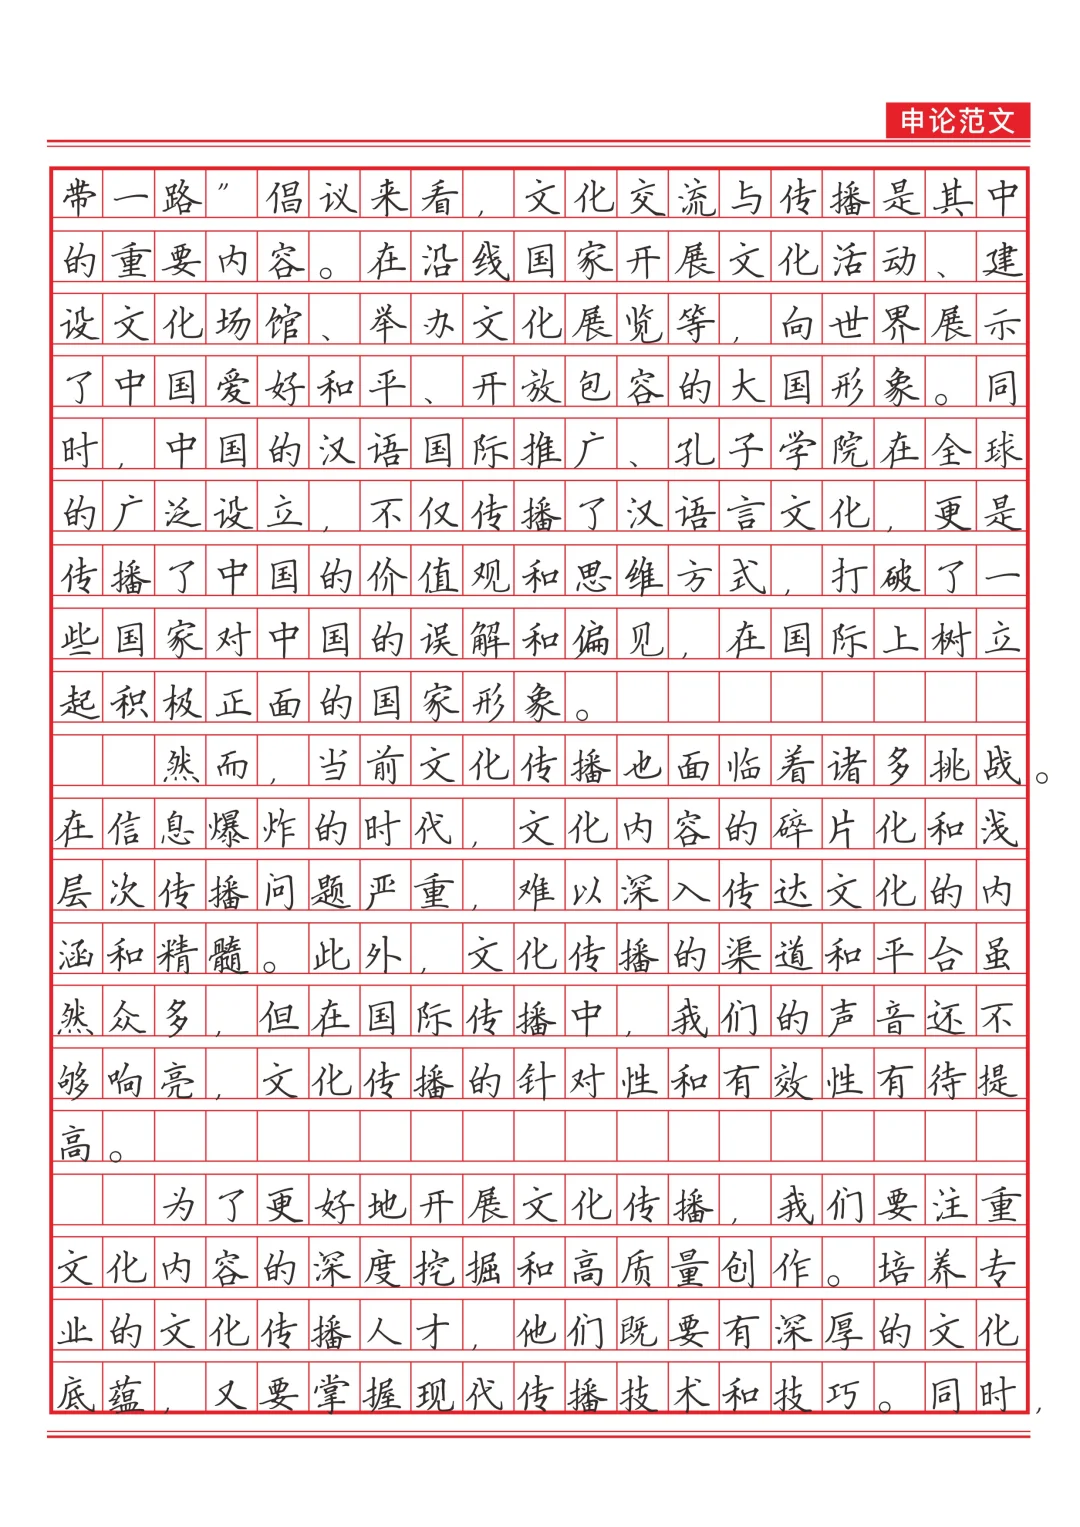 申论范文
带一路”倡议来看，文化交流与传播是其中
的重要内容。在沿线国家开展文化活动、建
设文化场馆、举办文化展览等，向世界展示
了中国爱好和平、开放包容的大国形象。同
时，中国的汉语国际推广、孔子学院在全球
的广泛设立，不仅传播了汉语言文化，更是
传播了中国的价值观和思维方式，打破了一
些国家对中国的误解和偏见，在国际上树立
起积极正面的国家形象。
然而，当前文化传播也面临着诸多挑战。
在信息爆炸的时代，文化内容的碎片化和浅
层次传播问题严重，难以深入传达文化的内
涵和精髓。此外，文化传播的渠道和平台虽
然众多，但在国际传播中，我们的声音还不
够响亮，文化传播的针对性和有效性有待提
高。
为了更好地开展文化传播，我们要注重
文化内容的深度挖掘和高质量创作。培养专
业的文化传播人才，他们既要有深厚的文化
底蕴，又要掌握现代传播技术和技巧。同时，